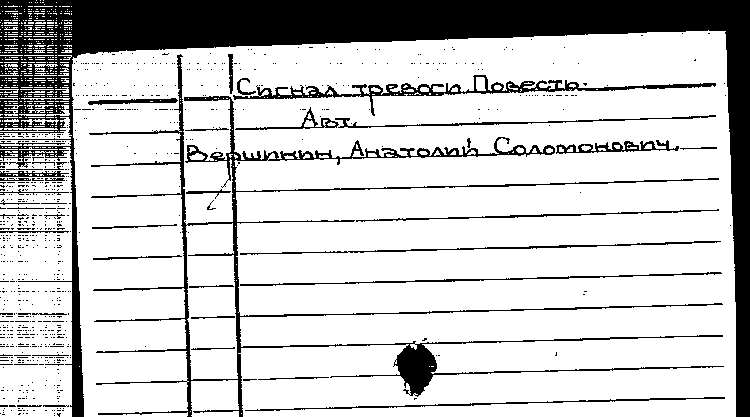 Сигнал тревоги Повесть.
Авт.
Вершинин, Анатолий Соломонович.